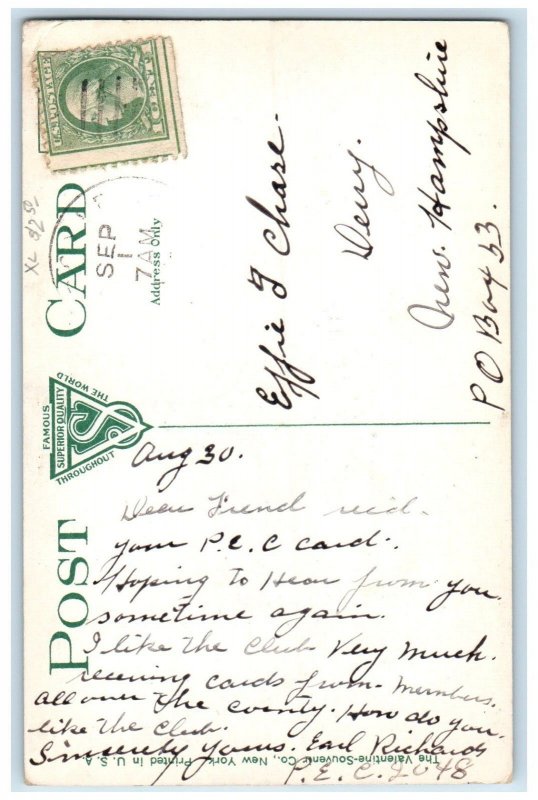 U.S. POSTAGE
1 CENT
XL 3/2 50
POST CARD
SEP
1
7 AM
Address Only
FAMOUS
SUPERIOR QUALITY
THROUGHOUT
THE WORLD
Effie F Chase.
Derry.
New. Hampshire
PO Box 53.
Aug 30.
Dear Friend recd.
your P.E.C card.
Hoping to Hear from you
sometime again.
I like the Club Very Much.
receving cards from. members.
all over the county. How do you
like the Club.
Sincerely yours. Earl Richards
P.E.C. 2048
The Valentine-Souvenir Co., New York, Printed in U. S. A